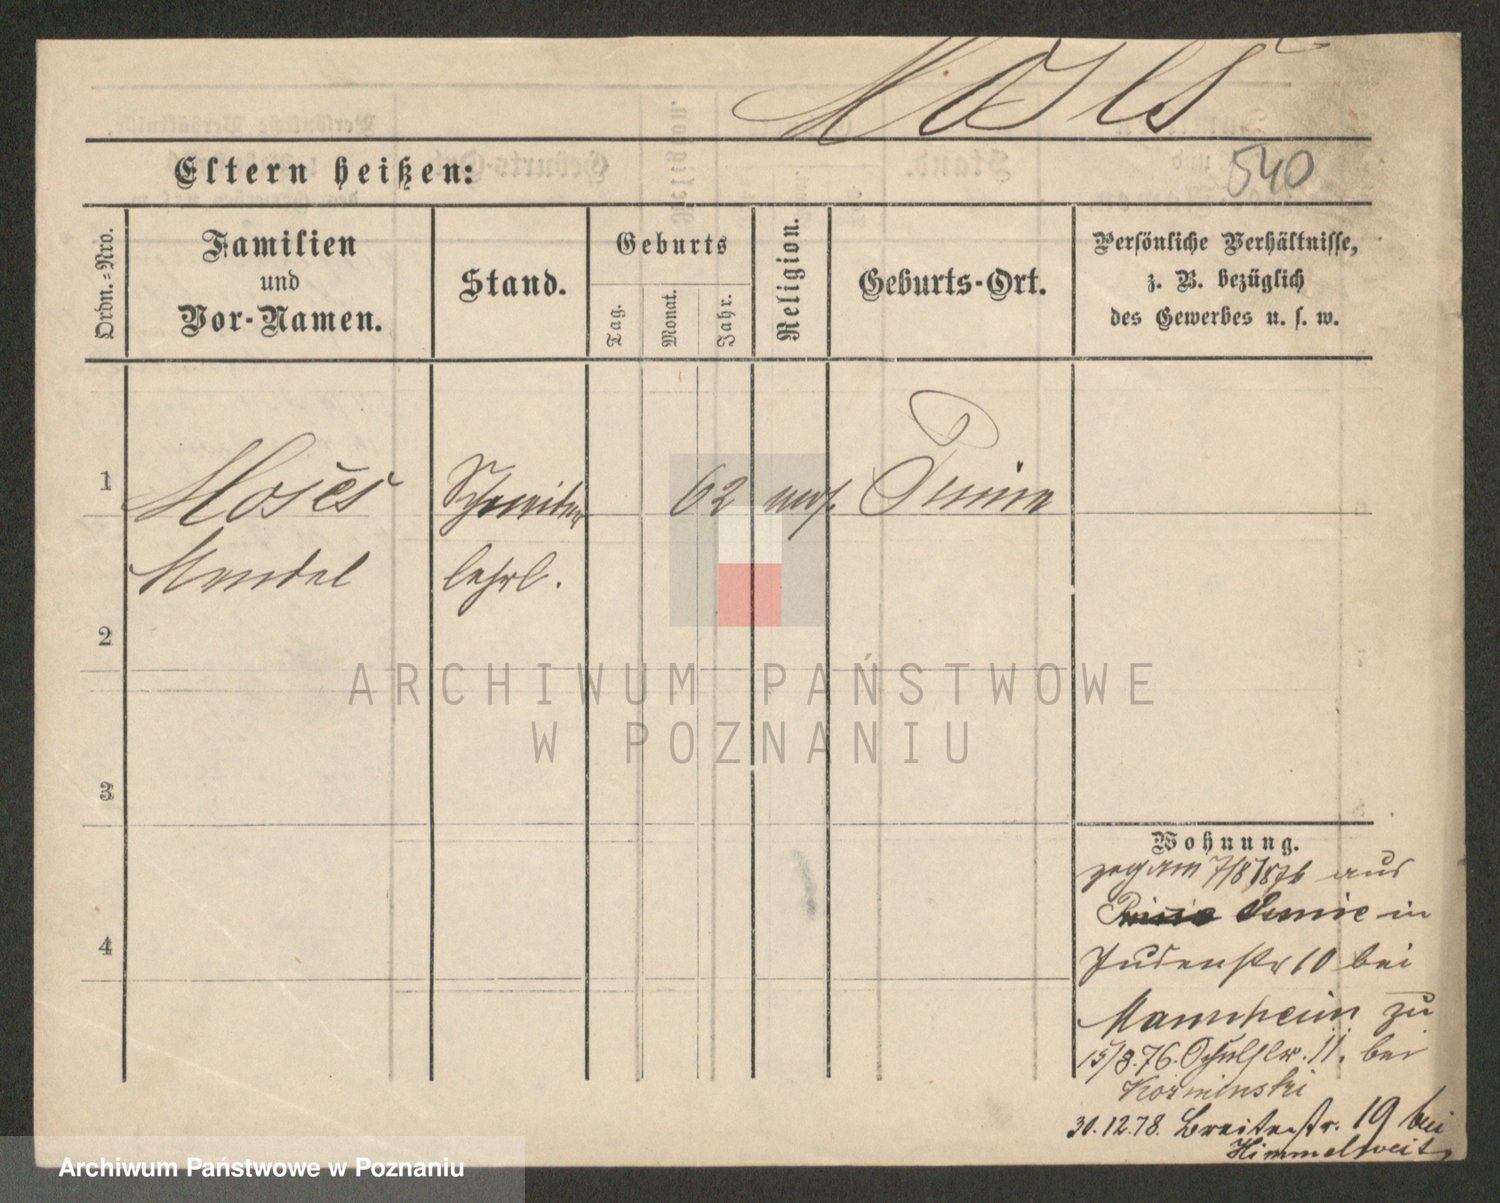 Moses
Eltern heißen:
540
Ordn.-Nro.
Familien
und
Vor-Namen.
Stand.
Geburts
Tag.
Monat.
Jahr.
Religion.
Geburts-Ort.
Persönliche Verhältnisse,
z. B. bezüglich
des Gewerbes u. s. w.
1
Moses
Schneider
62
mos.
Pinne
Mendel
lehrl.
2
ARCHIWUM PAŃSTWOWE
W POZNANIU
3
4
Wohnung.
zog am 7/8 1876 aus
Pinne in
Judenstr 10 bei
Mannheim zu
15/8.76. Schulstr. 11. bei
Kozminski
30.12.78. Breitestr. 19 bei
Himmelweit
Archiwum Państwowe w Poznaniu